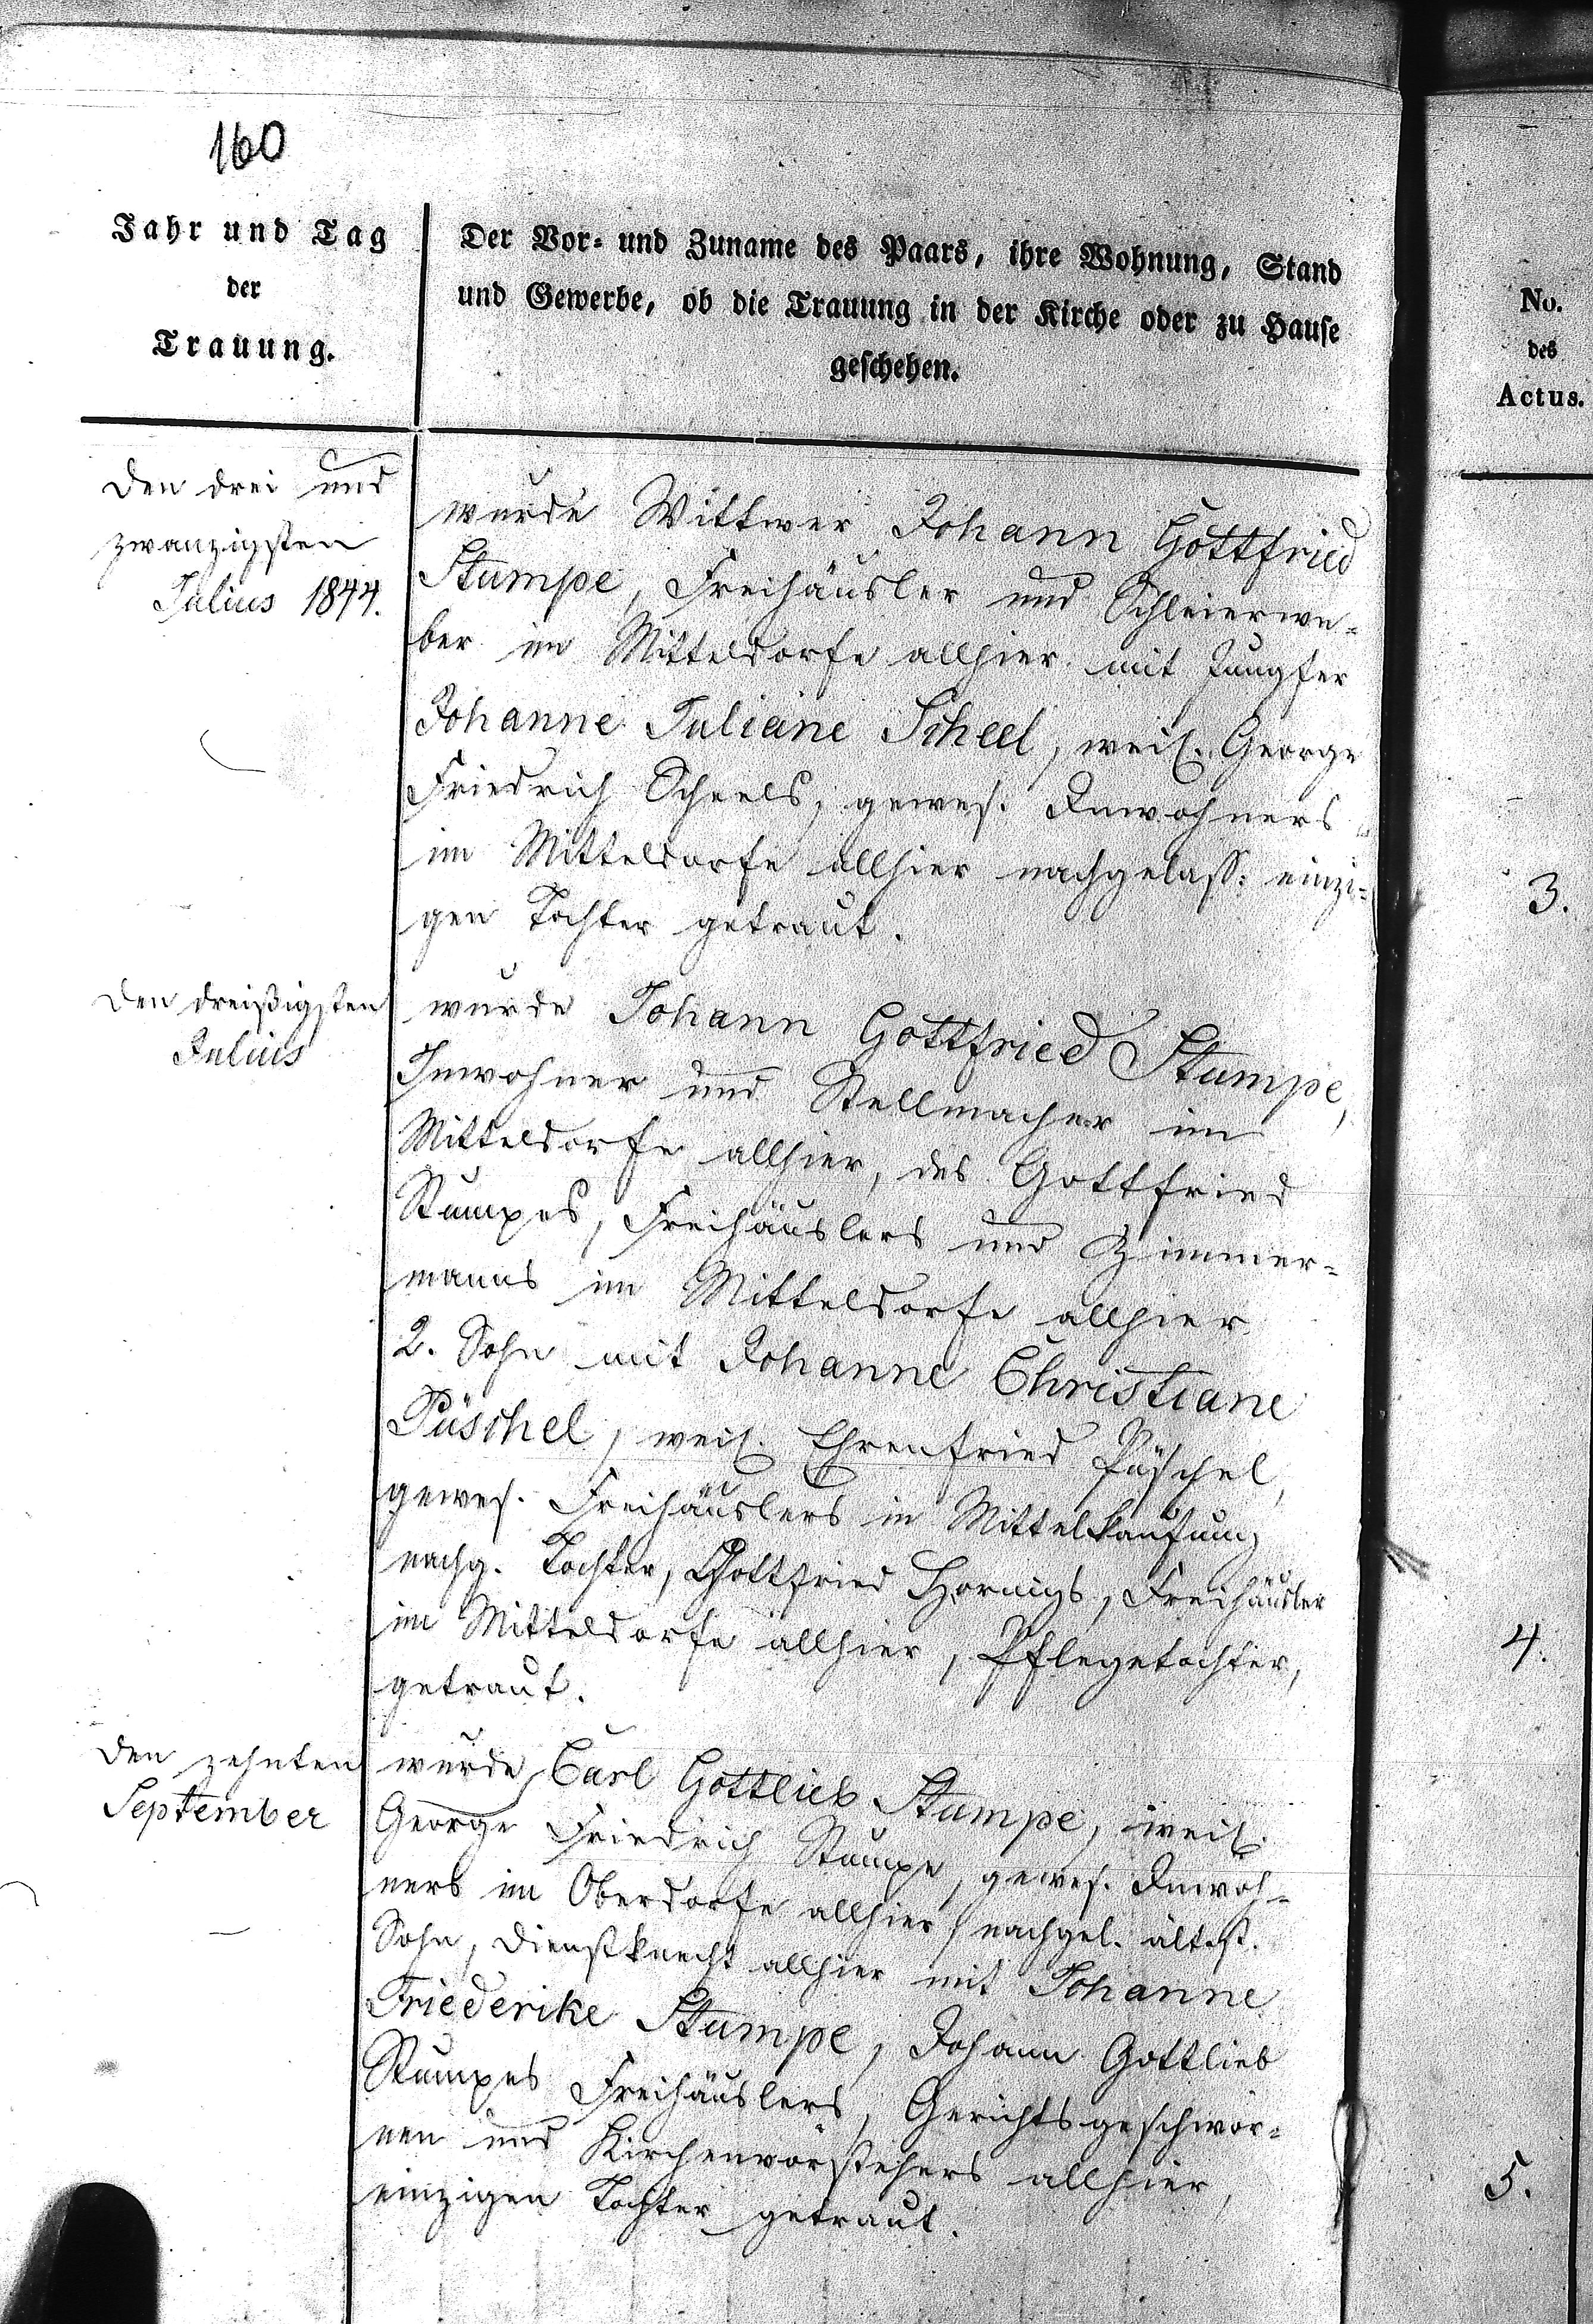 160
Jahr und Tag
der
Trauung.
Der Vor- und Zuname des Paars, ihre Wohnung, Stand
und Gewerbe, ob die Trauung in der Kirche oder zu Hause
geschehen.
No.
des
Actus.
Den drei und
zwanzigsten
Julius 1844.
wurde Wittwer Johann Gottfried
Stumpe, Freihäusler und Schleierwe-
ber im Mitteldorfe allhier mit Jungfer
Johanne Juliane Scheel, weil. George
Friedrich Scheels, gewes. Inwohners
im Mitteldorfe allhier nachgelass: einzi-
gen Tochter getraut.
3.
Den dreißigsten
Julius
wurde Johann Gottfried Stumpe,
Inwohner und Stellmacher im
Mitteldorfe allhier, des Gottfried
Stumpes, Freihäuslers und Zimmer-
manns im Mitteldorfe allhier
2. Sohn mit Johanne Christiane
Püschel, weil. Ehrenfried Püschel,
gewes. Freihäuslers in Mittelkaufung
nachg. Tochter, Gottfried Hornigs, Freihäusler
im Mitteldorfe allhier, Pflegetochter,
getraut.
4.
Den zehnten
September
wurde Carl Gottlieb Stumpe, weil.
George Friedrich Stumpe, gewes. Inwoh-
ners im Oberdorfe allhier, nachgel. ältest.
Sohn, Dienstknecht allhier mit Johanne
Friederike Stumpe, Johann Gottlieb
Stumpes Freihäuslers, Gerichtsgeschwor-
nen und Kirchenvorstehers allhier,
einzigen Tochter getraut.
5.